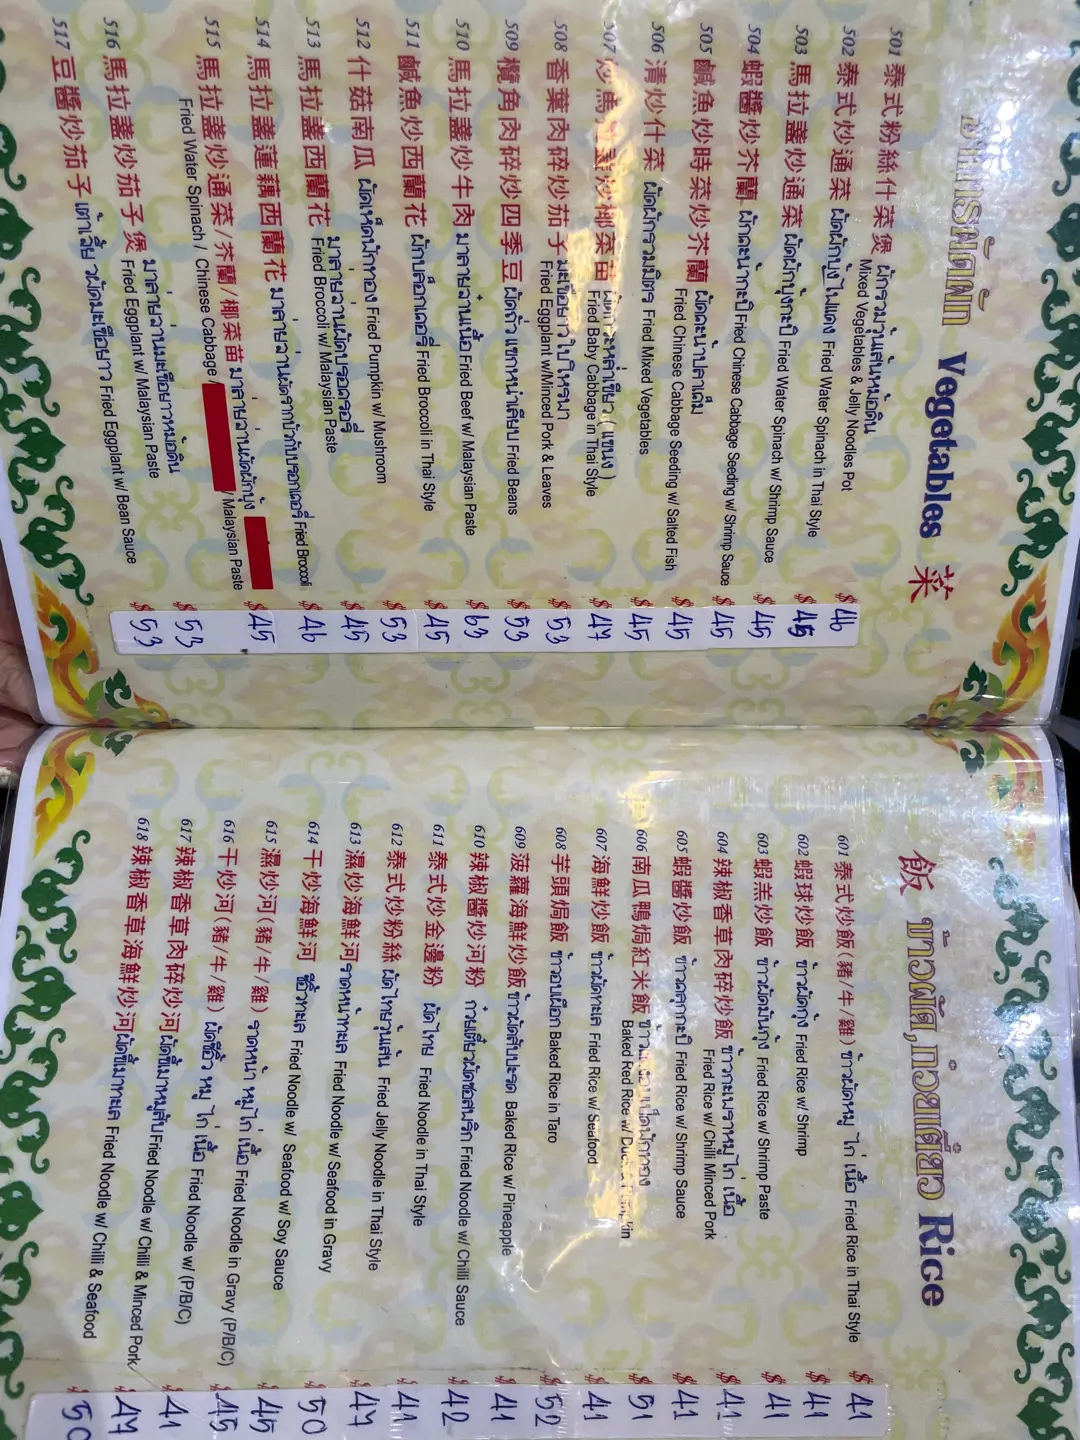 อาหารผัดผัก Vegetables 菜
501 泰式粉絲什菜煲 ผักรวมวุ้นเส้นหม้อดิน
Mixed Vegetables & Jelly Noodles Pot
$46
502 泰式炒通菜 ผัดผักบุ้งไฟแดง Fried Water Spinach in Thai Style
$45
503 馬拉盞炒通菜 ผัดผักบุ้งกะปิ Fried Water Spinach w/ Shrimp Sauce
$45
504 蝦醬炒芥蘭 ผักคะน้ากะปิ Fried Chinese Cabbage Seeding w/ Shrimp Sauce
$45
505 鹹魚炒時菜炒芥蘭 ผัดคะน้าปลาเค็ม
Fried Chinese Cabbage Seeding w/ Salted Fish
$45
506 清炒什菜 ผัดผักรวมมิตร Fried Mixed Vegetables
$45
507 炒馬拉盞炒椰菜苗 (แขนง)
Fried Baby Cabbage in Thai Style
$47
508 香葉肉碎炒茄子 มะเขือยาวใบโหรพา
Fried Eggplant w/Minced Pork & Leaves
$53
509 欖角肉碎炒四季豆 ผัดถั่วแขกหนำเลียบ Fried Beans
$53
510 馬拉盞炒牛肉 มาลายว่านเนื้อ Fried Beef w/ Malaysian Paste
$63
511 鹹魚炒西蘭花 ผักบล็อกเคอรี่ Fried Broccoli in Thai Style
$45
512 什菇南瓜 ผัดเห็ดฟักทอง Fried Pumpkin w/ Mushroom
$53
513 馬拉盞西蘭花 มาลายว่านผัดบรอคเคอรี่
Fried Broccoli w/ Malaysian Paste
$45
514 馬拉盞蓮藕西蘭花 มาลายว่านผัดรากบัวกับบรอกเคอรี่ Fried Broccoli
$46
515 馬拉盞炒通菜/芥蘭/椰菜苗 มาลายว่านผัดผักบุ้ง
Fried Water Spinach / Chinese Cabbage / / Malaysian Paste
$45
516 馬拉盞炒茄子煲 มาลายว่านมะเขือยาวหม้อดิน
Fried Eggplant w/ Malaysian Paste
$53
517 豆醬炒茄子 เต้าเจี้ยวผัดมะเขือยาว Fried Eggplant w/ Bean Sauce
$53
飯 ข้าวผัด,ก๋วยเตี๋ยว Rice
601 泰式炒飯(豬/牛/雞) ข้าวผัดหมู ไก่ เนื้อ Fried Rice in Thai Style
$41
602 蝦球炒飯 ข้าวผัดกุ้ง Fried Rice w/ Shrimp
$41
603 蝦羔炒飯 ข้าวผัดมันกุ้ง Fried Rice w/ Shrimp Paste
$41
604 辣椒香草肉碎炒飯 ข้าวกะเพราหมู ไก่ เนื้อ
Fried Rice w/ Chilli Minced Pork
$41
605 蝦醬炒飯 ข้าวคลุกกะปิ Fried Rice w/ Shrimp Sauce
$41
606 南瓜鴨焗紅米飯
Baked Red Rice w/ Duck & Pumpkin
$51
607 海鮮炒飯 ข้าวผัดทะเล Fried Rice w/ Seafood
$41
608 芋頭焗飯 ข้าวอบเผือก Baked Rice in Taro
$52
609 菠蘿海鮮炒飯 ข้าวผัดสับปะรด Baked Rice w/ Pineapple
$41
610 辣椒醬炒河粉 ก๋วยเตี๋ยวผัดซอสพริก Fried Noodle w/ Chilli Sauce
$42
611 泰式炒金邊粉 ผัดไทย Fried Noodle in Thai Style
$41
612 泰式炒粉絲 ผัดไทยวุ้นเส้น Fried Jelly Noodle in Thai Style
$47
613 濕炒海鮮河 ราดหน้าทะเล Fried Noodle w/ Seafood in Gravy
$50
614 干炒海鮮河 ซีอิ๊วทะเล Fried Noodle w/ Seafood w/ Soy Sauce
$45
615 濕炒河(豬/牛/雞) ราดหน้า หมู ไก่ เนื้อ Fried Noodle in Gravy (P/B/C)
$45
616 干炒河(豬/牛/雞) ผัดซีอิ๊ว หมู ไก่ เนื้อ Fried Noodle w/ (P/B/C)
$41
617 辣椒香草肉碎炒河 ผัดขี้เมาหมูสับ Fried Noodle w/ Chilli & Minced Pork
$47
618 辣椒香草海鮮炒河 ผัดขี้เมาทะเล Fried Noodle w/ Chilli & Seafood
$50